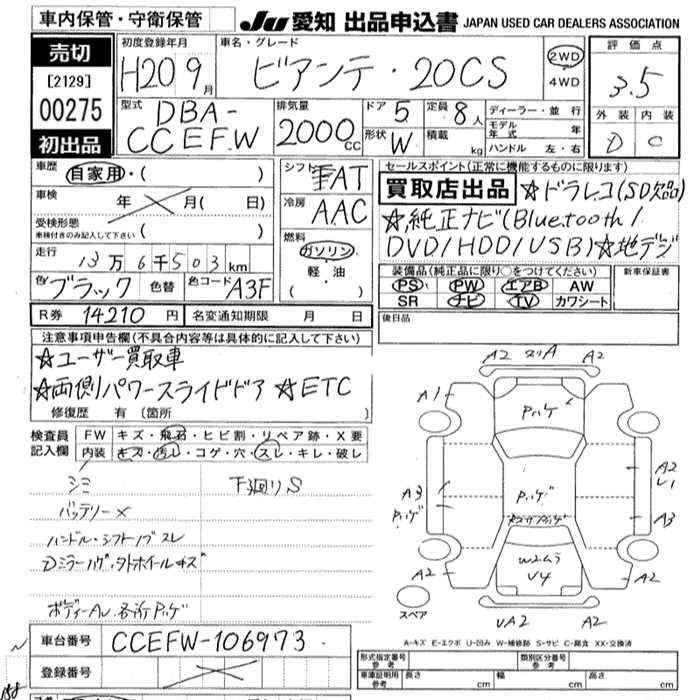 車内保管・守衛保管
JU 愛知 出品申込書 JAPAN USED CAR DEALERS ASSOCIATION
売切
[2129]
00275
初出品
初度登録年月
H20 9月
車名・グレード
ビアンテ・20CS
2WD
4WD
評価点
3.5
外装 内装
D C
型式
DBA-
CCEFW
排気量
2000cc
ドア 5
形状 W
定員 8人
積載 kg
ディーラー・並行
モデル年式 年
ハンドル 左・右
車歴 自家用・( )
車検 年 月( 日)
受検形態
車検付きのみ記入して下さい ( )
走行
13万6千503km
色 ブラック 色替 色コード A3F
シフト AT
冷房 AAC
燃料
ガソリン
軽・油
( )
セールスポイント(正常に機能するものに限ります)
買取店出品 ☆ドラレコ(SD欠品)
☆純正ナビ(Bluetooth/
DVD/HDD/USB)☆地デジ
装備品(純正品に限り○をつけてください)
PS PW エアB AW
SR ナビ TV カワシート
新車保証書
後日品
R券 14210円 名変通知期限 月 日
注意事項申告欄(不具合内容等は具体的に記入して下さい)
☆ユーザー買取車
☆両側パワースライドドア ☆ETC
修復歴 有 (箇所 )
検査員記入欄
FW キズ・飛石・ヒビ割・リペア跡・X要
内装 キズ・汚レ・コゲ・穴・スレ・キレ・破レ
シミ 下廻りS
バッテリーX
ハンドル・シフトノブスレ
ボディーAU 各所ハゲ
A2 ヌリA A2
A1
A2
A3
A3
A2 A2
UA2 A2
W2ムラ
U4
スペア
A-キズ E-エクボ U-凹み W-補修跡 S-サビ C-腐食 XX-交換済
車台番号 CCEFW-106973
登録番号
形式指定番号参考
類別区分番号参考
車庫証明用参考 長さ cm 幅 cm 高さ cm